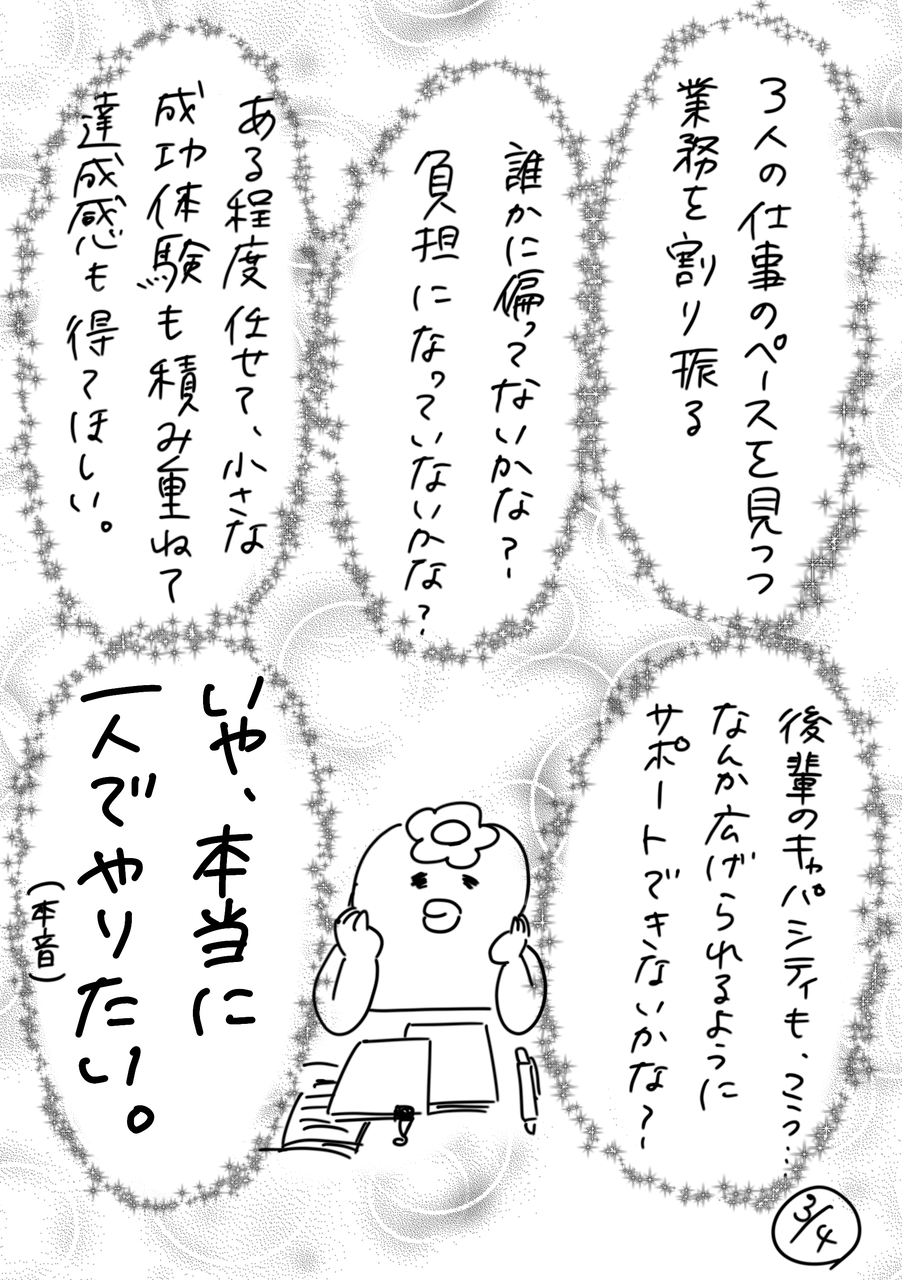 3人の仕事のペースを見つつ
業務を割り振る
誰かに偏ってないかな?
負担になっていないかな?
ある程度任せて、小さな
成功体験も積み重ねて
達成感も得てほしい。
後輩のキャパシティも、こう…
なんか広げられるように
サポートできないかな?
いや、本当に
一人でやりたい。
(本音)
3/4